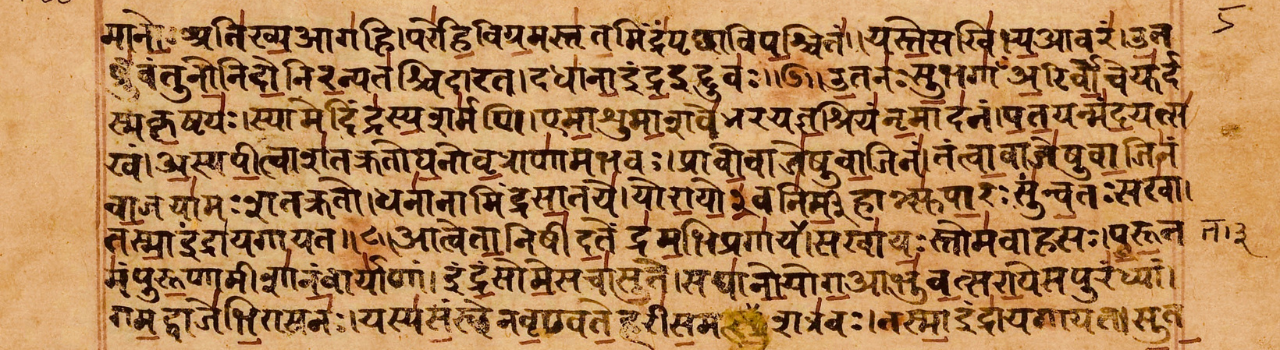 मानो अतिख्य आ गहि । परेहि विग्रमस्तृतमिंद्रं पृछा विपश्चितं । यस्ते सखिभ्य आ वरं । उत ५
ब्रुवंतु नो निदो निरन्यतश्चिदारत । दधाना इंद्र इद्दुवः ॥७॥ उत नः सुभगाँ अरिर्वोचेयुर्द
स्म कृष्टयः । स्यामेदिंद्रस्य शर्मणि । एमाशुमाशवे भर यज्ञश्रियं नृमादनं । पतयन्मंदयत्स
खं । अस्य पीत्वा शतक्रतो घनो वृत्राणामभवः । प्रावो वाजेषु वाजिनं । तं त्वा वाजेषु वाजिनं
वाजयामः शतक्रतो । धनानामिंद्र सातये । यो रायो३वनिर्म३हान्त्सुपारः सुन्वतः सखा ।
तस्मा इंद्राय गायत ॥८॥ आ त्वेता निषीदतेंद्रमभि प्रगाय । सखायः स्तोमवाहसः । पुरूत त । ३
मं पुरूणामीशानं वार्याणां । इंद्रं सोमे सचा सुते । स घा नो योग आ भुवत्स राये स पुरंध्यां ।
गमद्वाजेभिरा स नः । यस्य संस्थे न वृण्वते हरी सम शत्रवः । तस्मा इंद्राय गायत । सुत